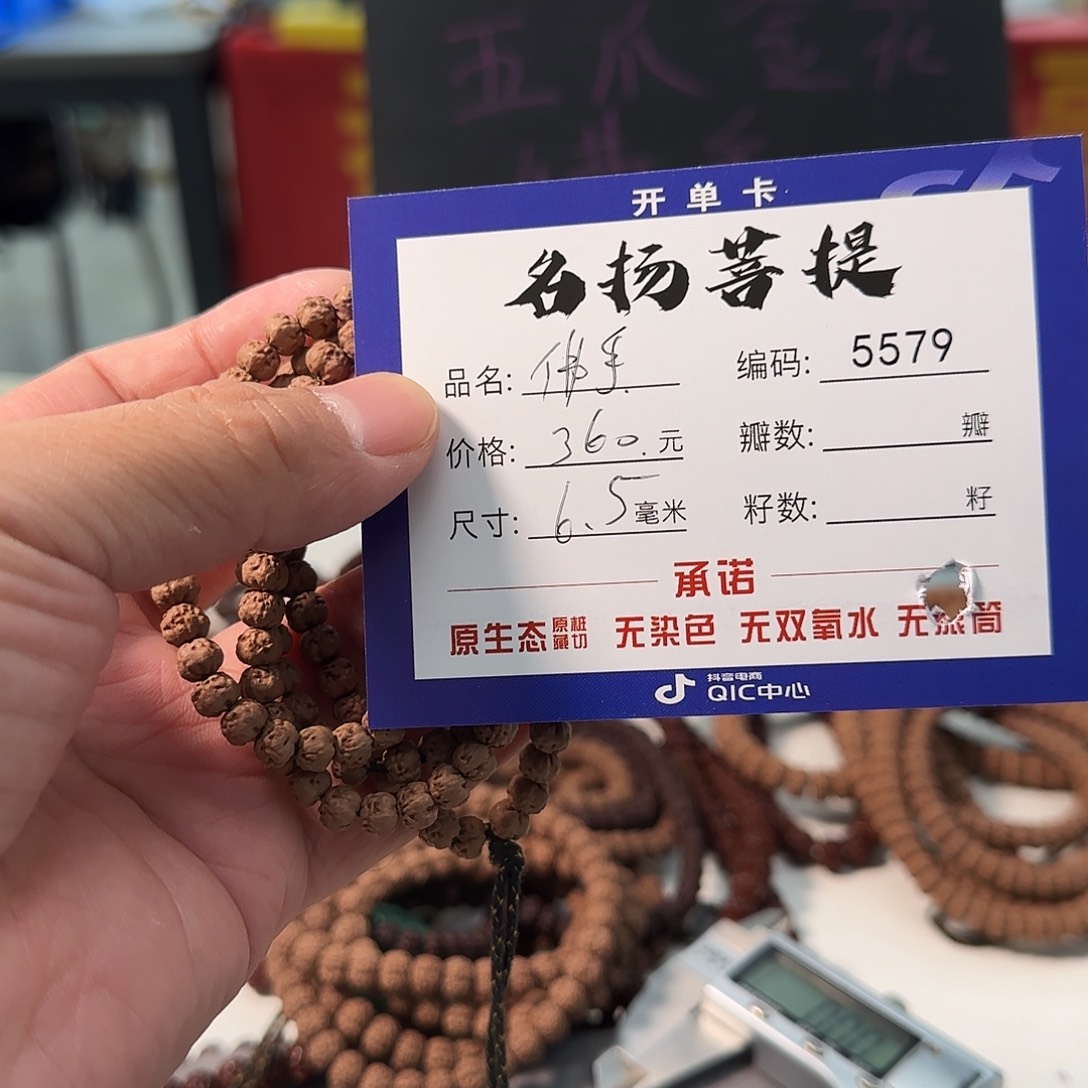 五爪金龙
开单卡
名扬菩提
品名: 佛手 编码: 5579
价格: 360.元 瓣数: 瓣
尺寸: 6.5毫米 籽数: 籽
承诺
原生态 原桩藏切 无染色 无双氧水 无 筒
抖音电商
QIC中心